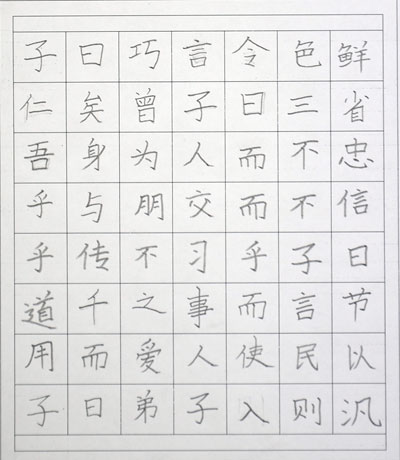 子曰巧言令色鲜
仁矣曾子曰三省
吾身为人而不忠
乎与朋交而不信
乎传不习乎子曰
道千之事而言节
用而爱人使民以
子曰弟子入则汎